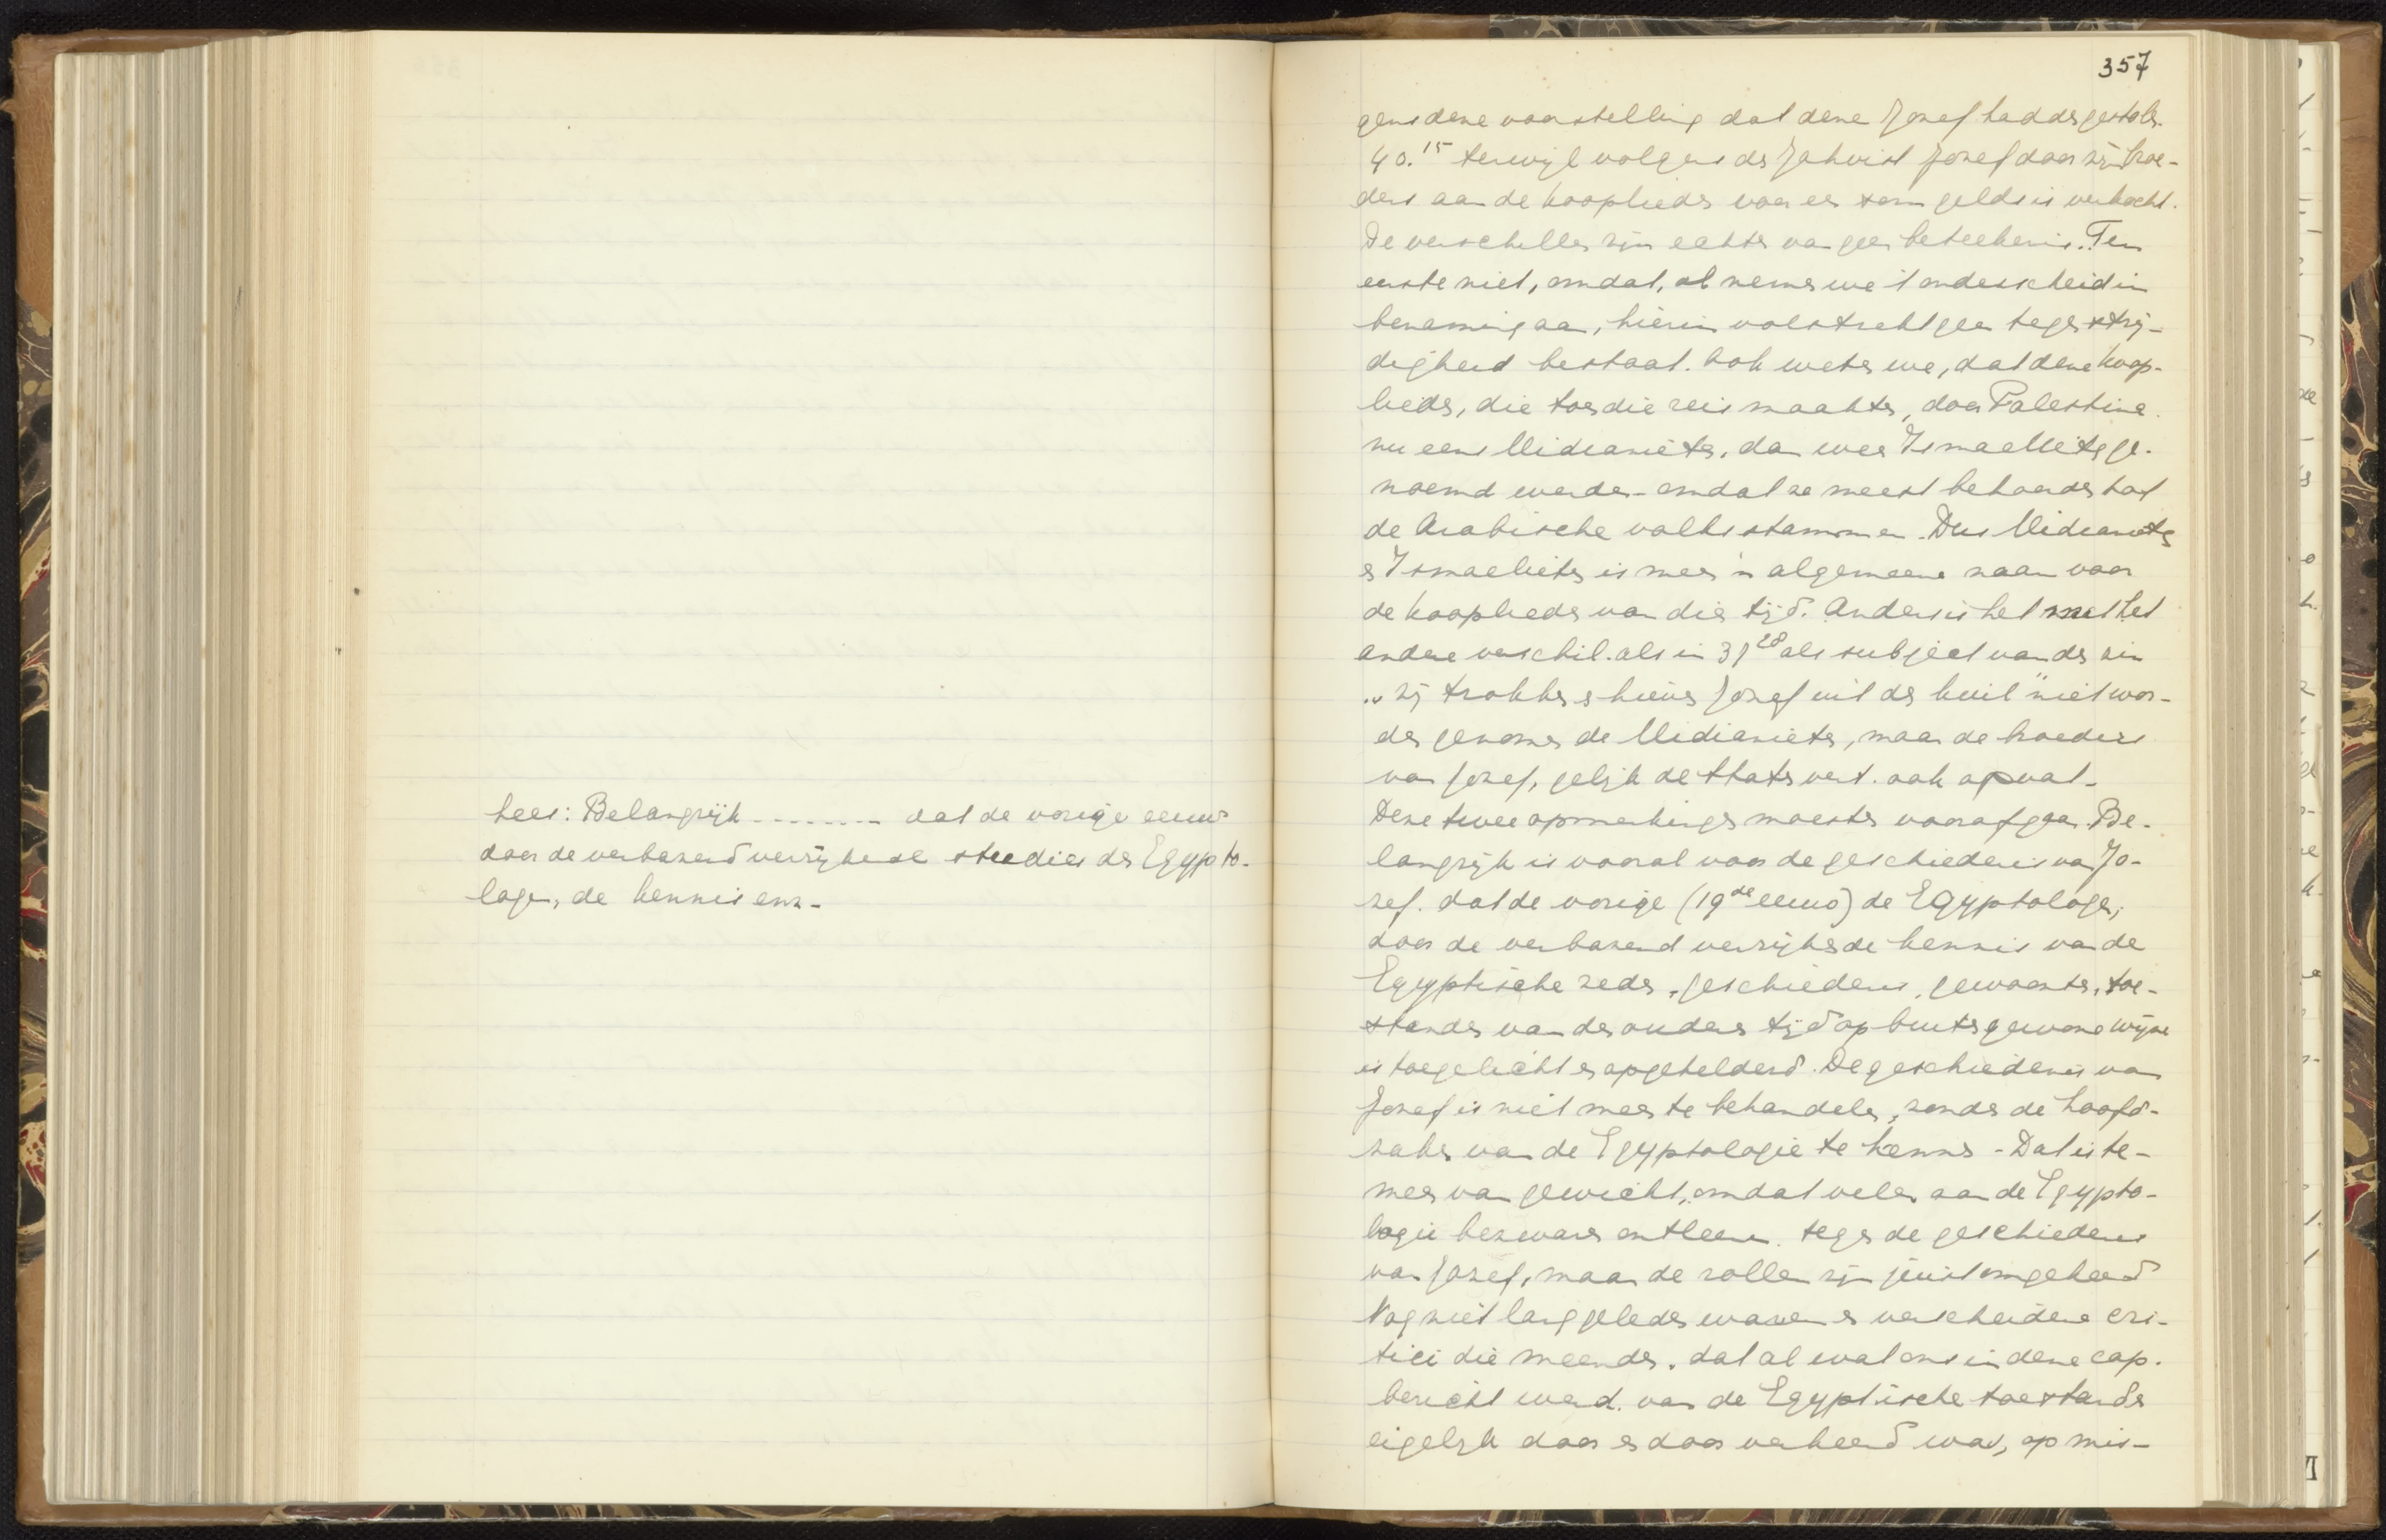 lees: Belangrijk -------- dat de vorige eeuw
door de verbazend verrijkende studies der Egypto-
logen, de kennis enz-
357
gens deze voorstelling dat deze Jozef hadden gestolen.
40.15 terwijl volgens de Jahvist Jozef door zijn broe-
ders aan de kooplieden voor een som gelds is verkocht.
De verschillen zijn echter van geen beteekenis. Ten
eerste niet, omdat, al nemen we 't onderscheid in
benaming aan, hierin volstrekt geen tegenstrij-
digheid bestaat. Ook weten we, dat deze koop-
lieden, die toen die reis maakten, door Palestina
nu eens Midianieten, dan weer Ismaelieten ge-
noemd werden - omdat ze meest behoorden tot
de Arabische volksstammen. Dus Midianieten
en Ismaelieten is meer 'n algemeene naam voor
de kooplieden van die tijd. Anders is het met het
andere verschil. als in 37 28 als subject van de zin
"zij trokken en hieven Jozef uit de kuil" niet wor-
den genomen de Midianieten, maar de broeders
van Jozef, gelijk de Staten vert. ook opvat-
Deze twee opmerkingen moesten voorafgaan. Be-
langrijk is vooral voor de geschiedenis van Jo-
zef. dat de vorige (19de eeuw) de Egyptologen,
door de verbazend verrijkende kennis van de
Egyptische zeden, geschiedenis, gewoonten, toe-
standen van de oudere tijd op buitengewone wijze
is toegelicht en opgehelderd. De geschiedenis van
Jozef is niet meer te behandelen, zonder de hoofd-
zaken van de Egyptologie te kennen - Dat is te-
meer van gewicht, omdat velen aan de Egypto-
logie bezwaren ontleenen tegen de geschiedenis
van Jozef, maar de rollen zijn juist omgekeerd
Nog niet lang geleden waren er verscheidene cri-
tici die meenden, dat al wat ons in deze cap.
bericht werd van de Egyptische toestanden
eigelijk door en door verkeerd was, op mis-